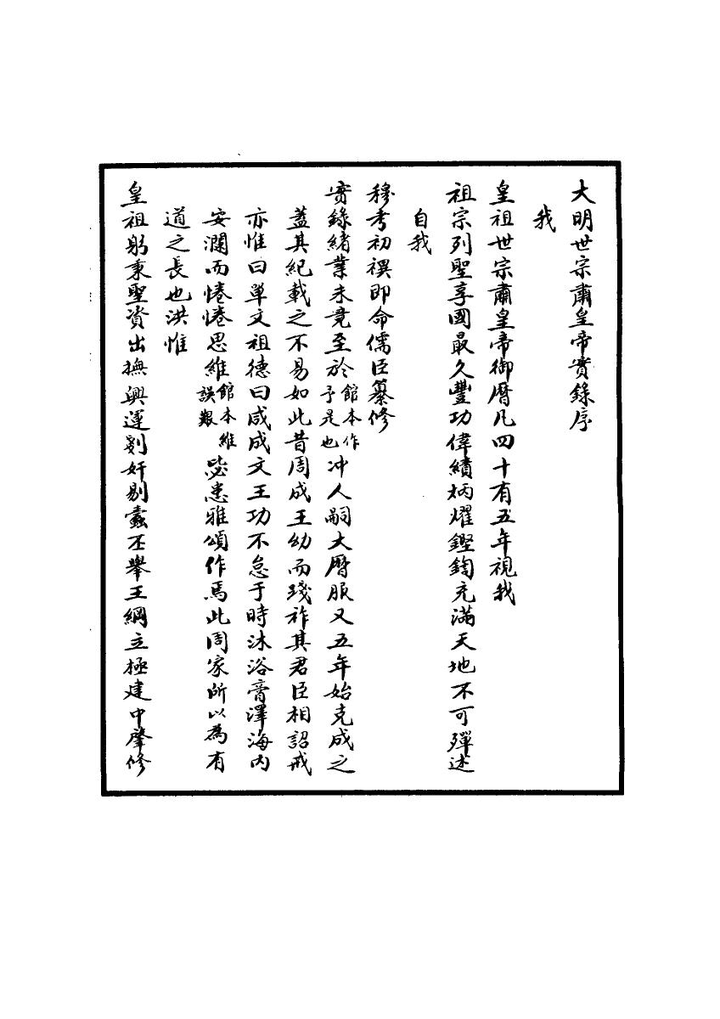 大明世宗肅皇帝實錄序
我
皇祖世宗肅皇帝御曆凡四十有五年視我
祖宗列聖享國最久豐功偉績炳燿鏗鍧充滿天地不可殫述
自我
穆考初禩即命儒臣纂修
實錄緒業未竟至於館本作于是也冲人嗣大曆服又五年始克成之
蓋其紀載之不易如此昔周成王幼而踐祚其君臣相詔戒
亦惟曰單文祖德曰咸成文王功不怠于時沐浴膏澤海内
安瀾而惓惓思維館本維誤艱毖患雅頌作焉此周家所以為有
道之長也洪惟
皇祖躬秉聖資出撫興運剗奸剔蠹丕舉王綱立極建中肇修